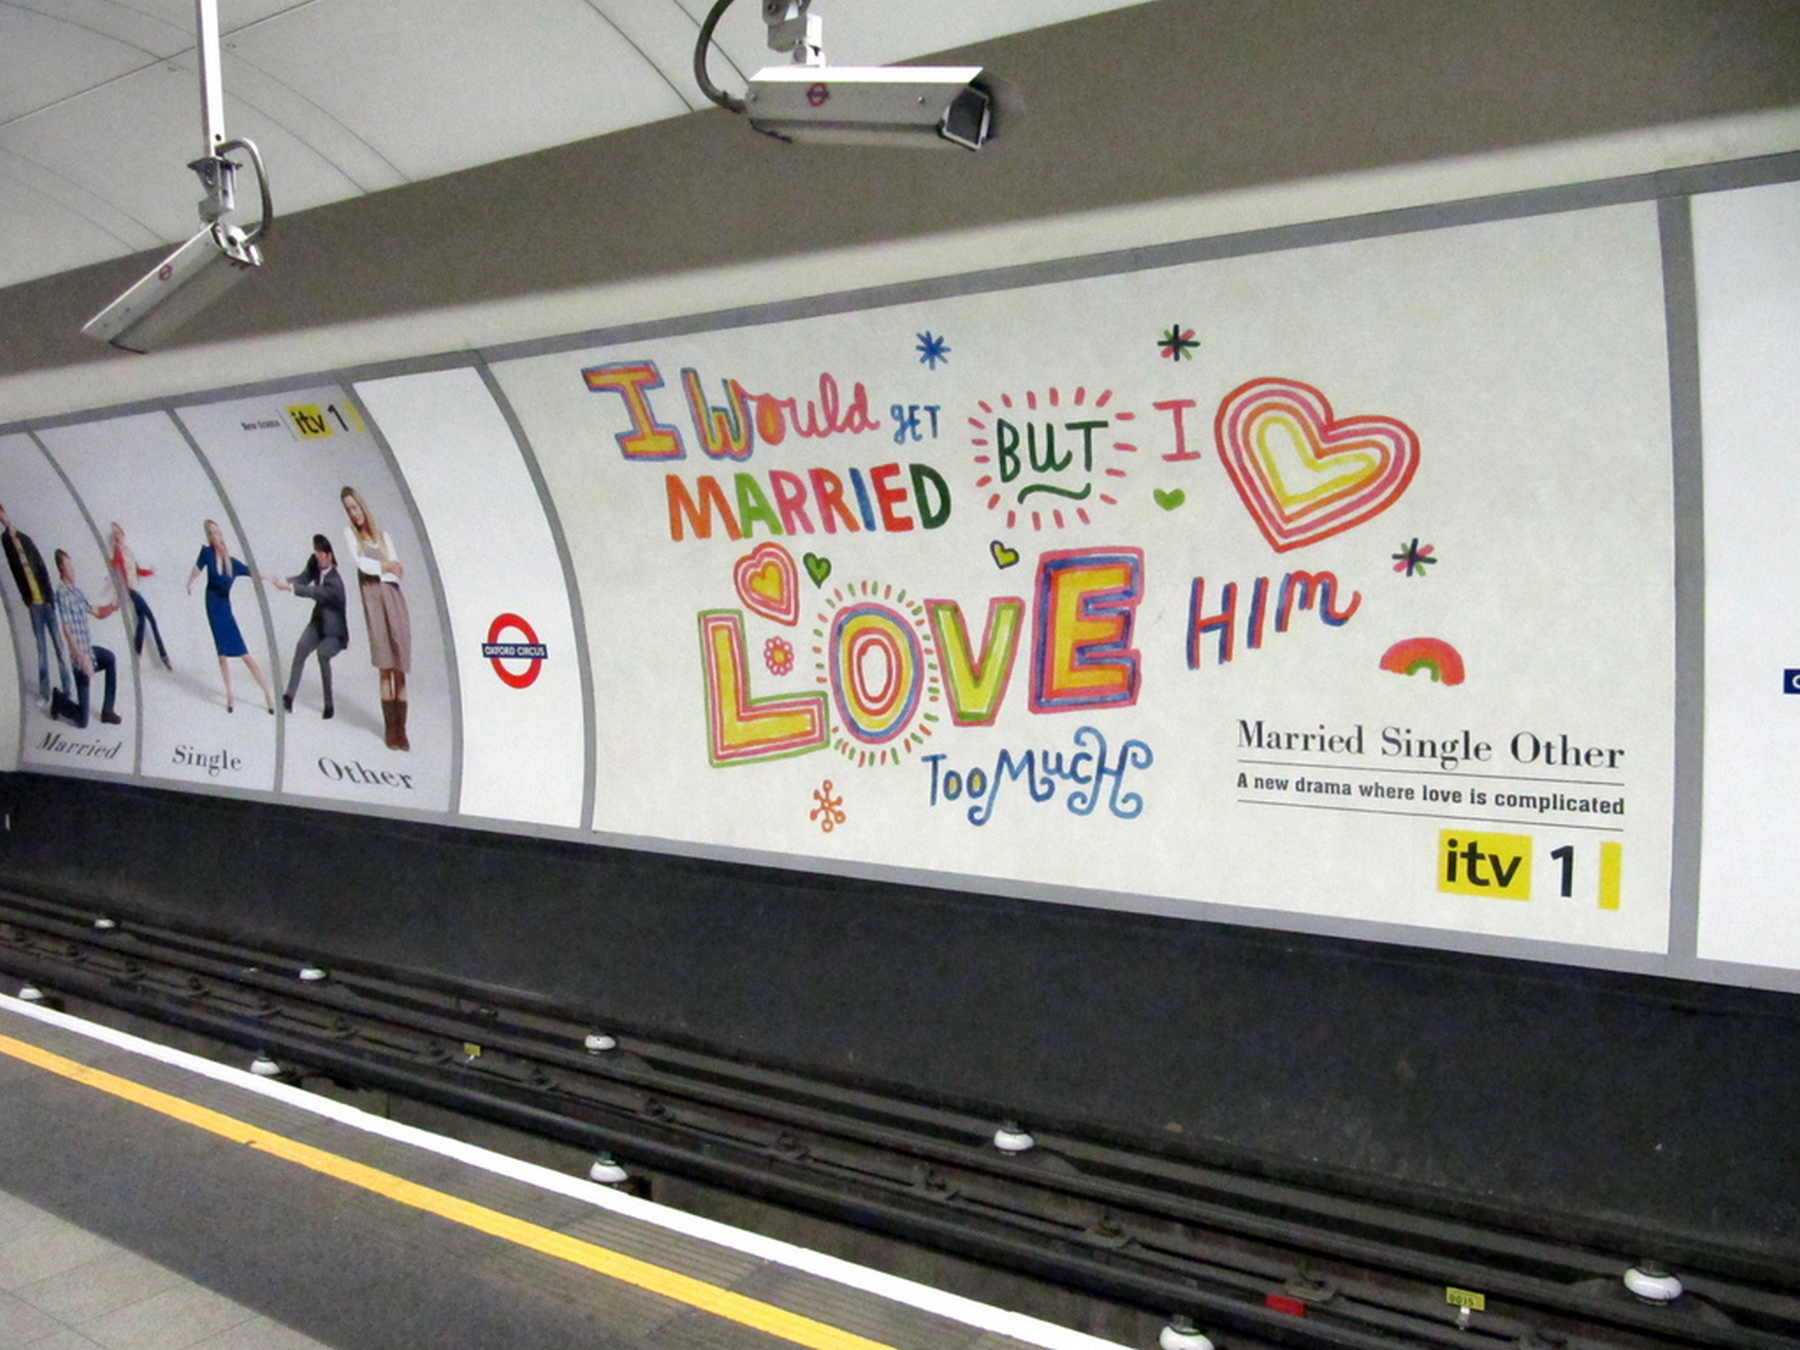 New drama
itv 1
Married
Single
Other
OXFORD CIRCUS
I Would GET BUT I
MARRIED
LOVE HIM
TOO MUCH
Married Single Other
A new drama where love is complicated
itv 1